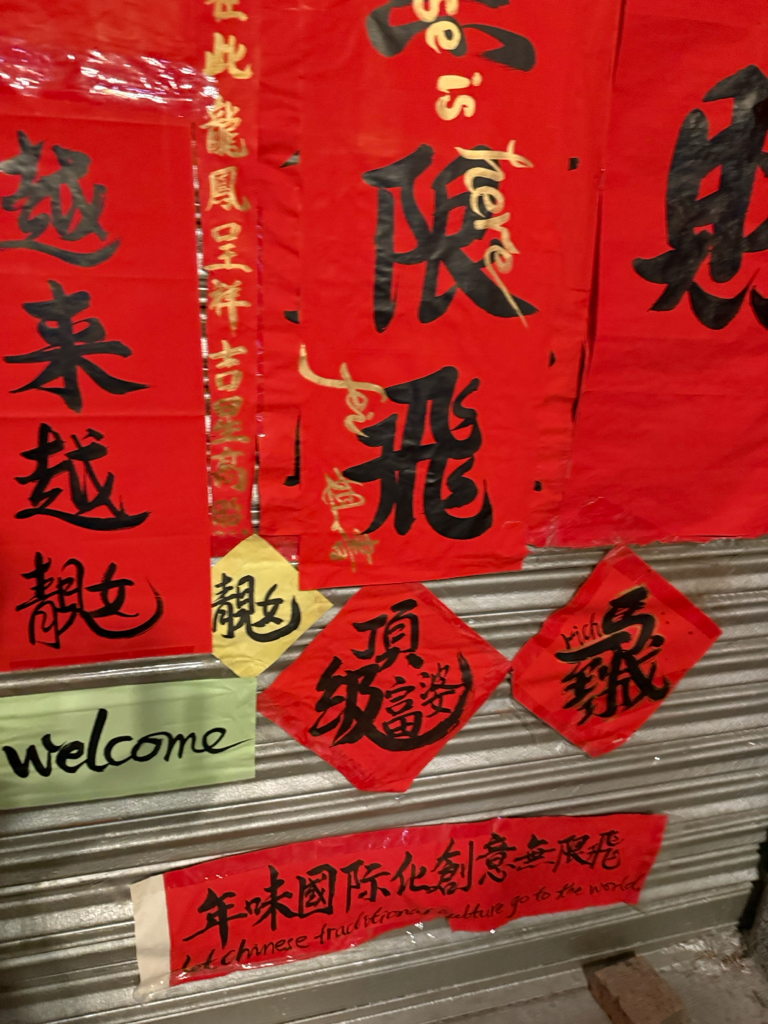 越来越靚女
在此龍鳳呈祥吉星高
無限飛
se is here
fei
財
靚女
頂級富婆
rich
welcome
年味國际化創意無限飛
Let chinese traditional culture go to the world